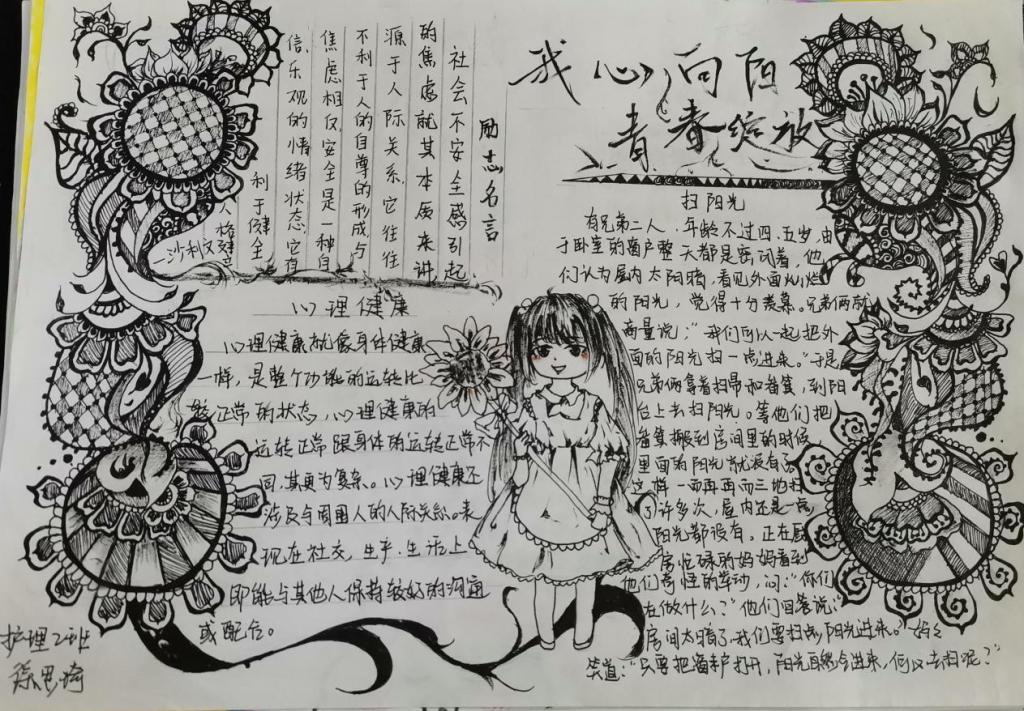 我心向阳
青春绽放
励志名言
社会不安全感引起
的焦虑就其本质来讲,
源于人际关系,它往往
不利于人的自尊的形成,与
焦虑相仅,安全是一种自
信、乐观的情绪状态,它有
利于健全
人格
—沙利文
心理健康
心理健康就像身体健康
一样,是整个功能的运转比
较正常的状态,心理健康的
运转正常跟身体的运转正常不
同,其更为复杂。心理健康还
涉及与周围人的人际关系。来
现在社交,生产,生活上
即能与其他人保持较好的沟通
或配合。
扫阳光
有兄弟二人,年龄不过四、五岁,由
于卧室的窗户整天都是密闭着,他
们认为屋内太阳暗,看见外面灿烂
的阳光,觉得十分羡慕。兄弟俩就
商量说:“我们可以一起把外
面的阳光扫一点进来。”于是
兄弟俩拿着扫帚和畚箕,到阳
台上去扫阳光。等他们把
畚箕搬到房间里的时候
里面的阳光就没有了
这样一而再再而三地扫
了许多次,屋内还是一点
阳光都没有。正在厨
房忙碌的妈妈看到
他们奇怪的举动,问:“你们
在做什么?”他们回答说:“
房间太暗了,我们要扫点阳光进来。”妈妈
笑道:“只要把窗户打开,阳光自然会进来,何必去扫呢?”
护理2班